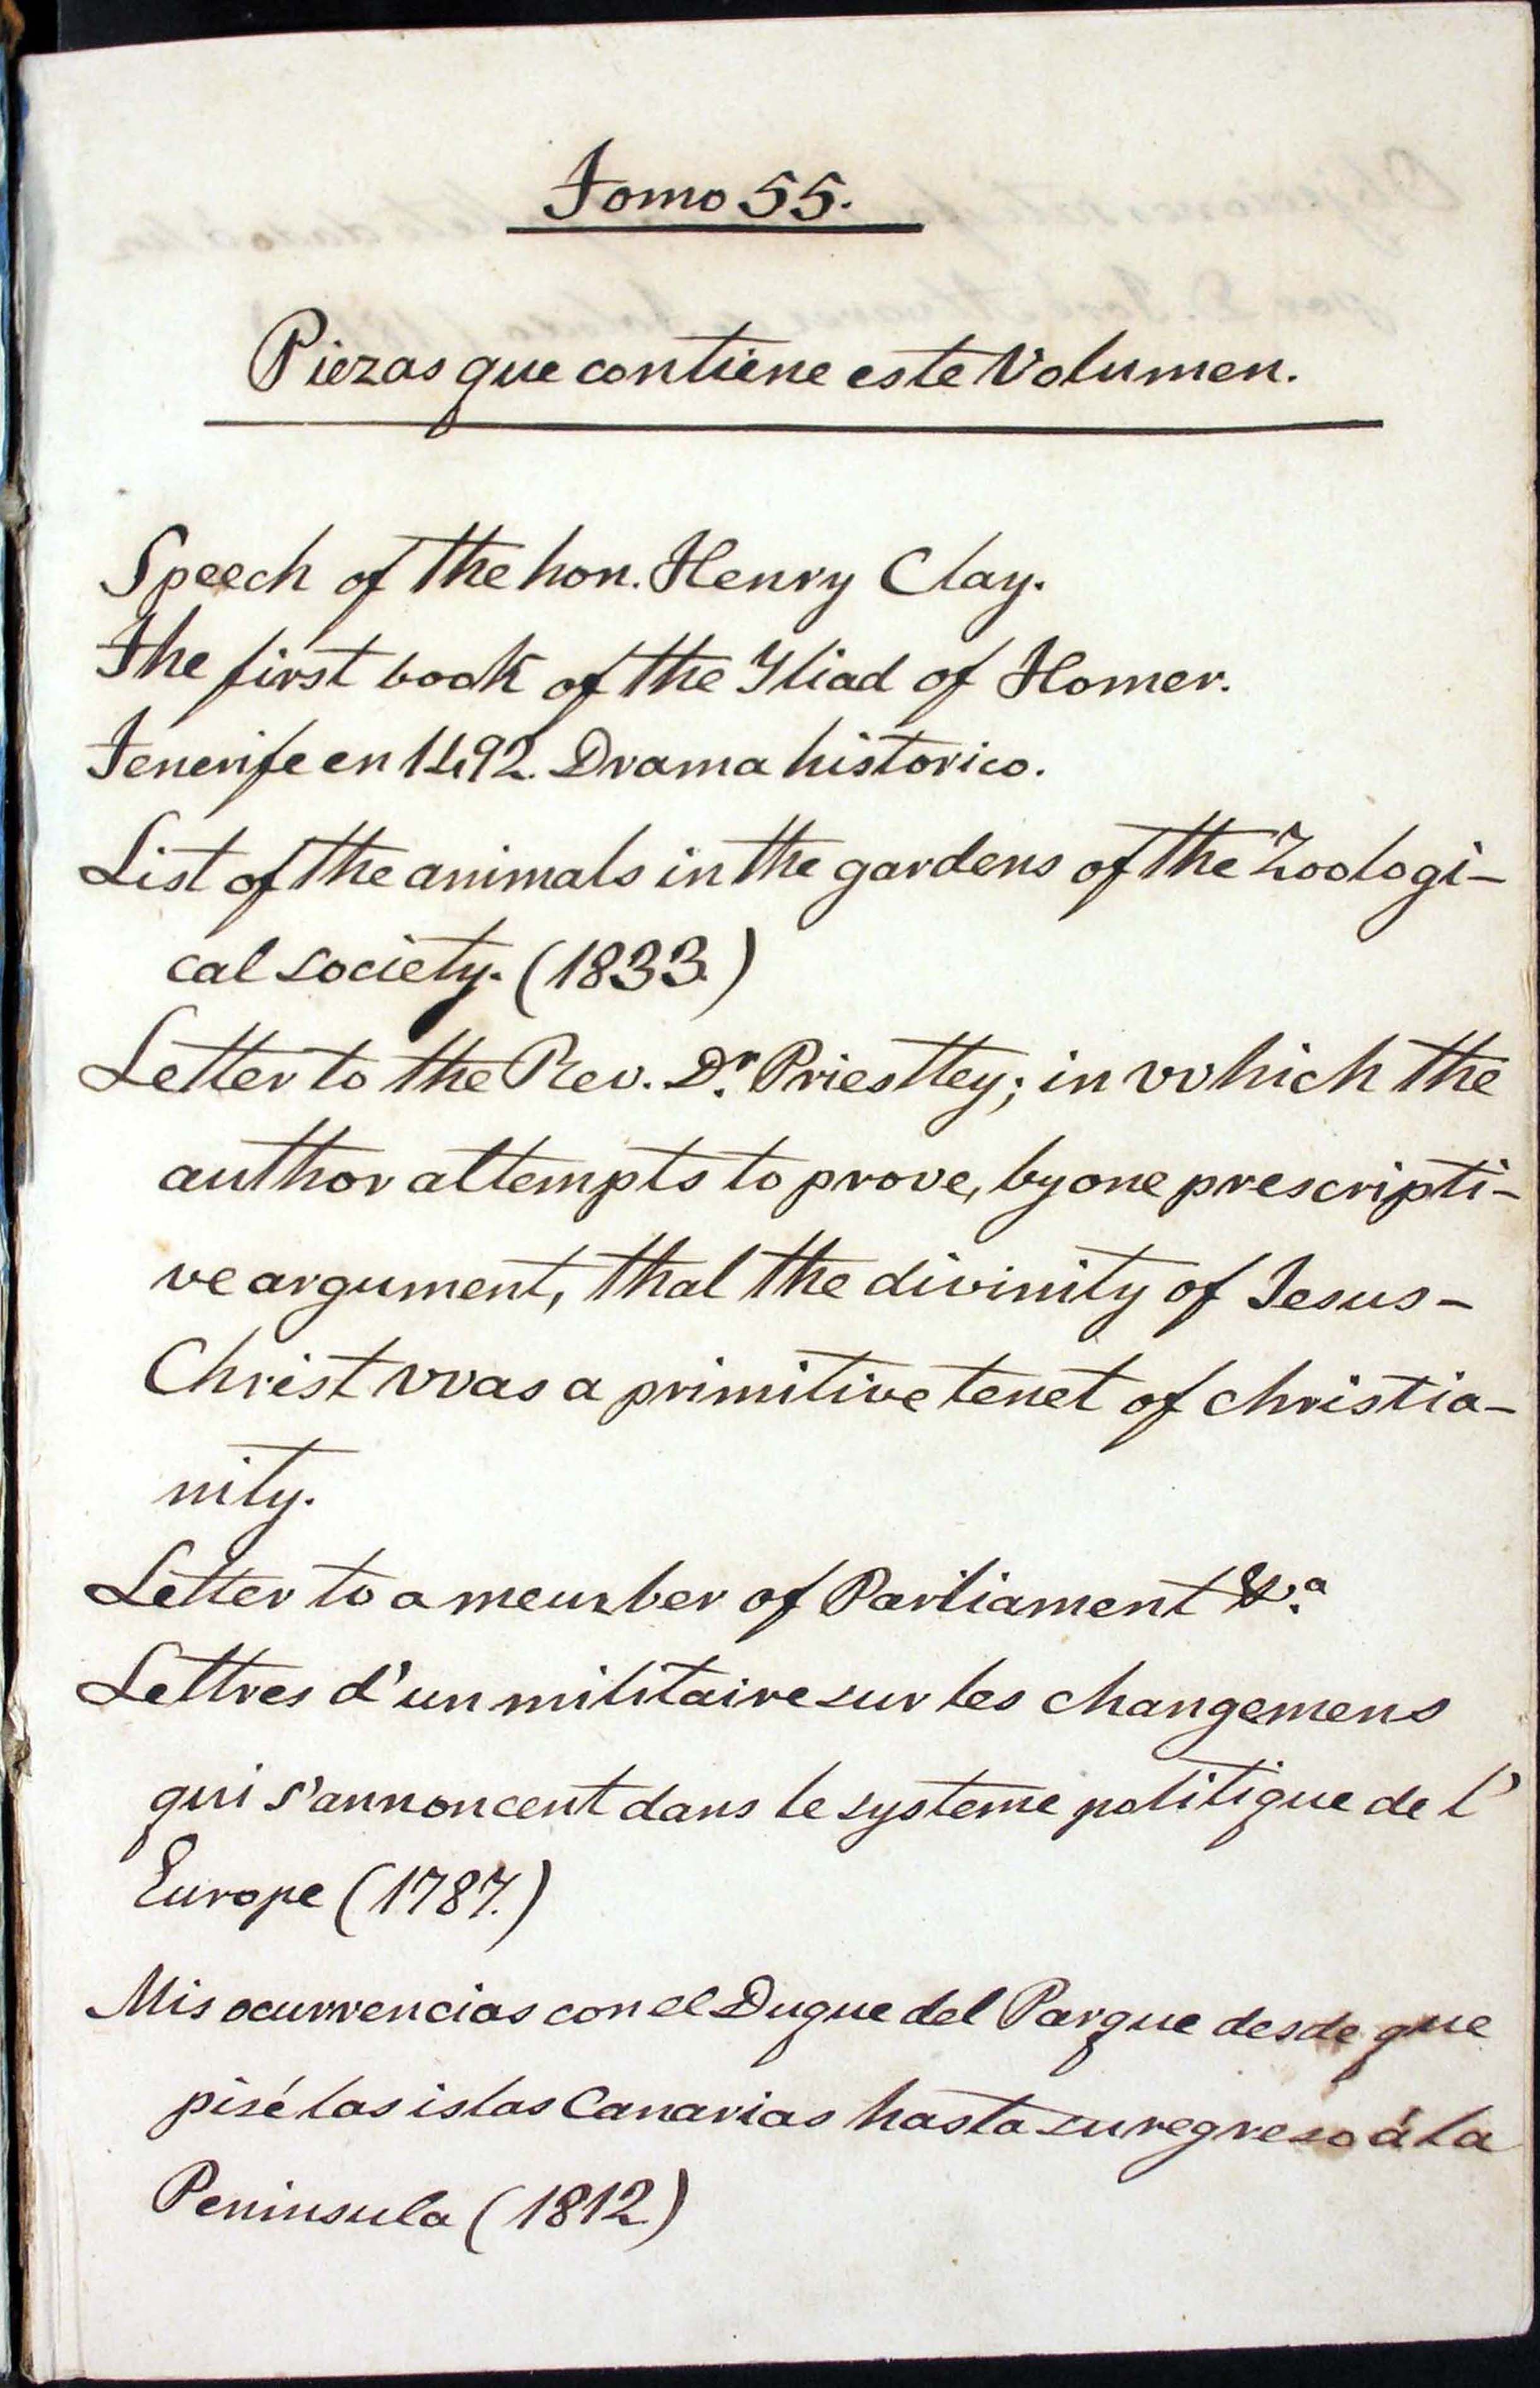 Tomo 55.
Piezas que contiene este Volumen.
Speech of the hon. Henry Clay.
The first book of the Yliad of Homer.
Tenerife en 1492. Drama historico.
List of the animals in the gardens of the Zoologi-
cal society. (1833.)
Letter to the Rev. Dr. Priestley; in which the
author attempts to prove, by one prescripti-
ve argument, that the divinity of Jesus-
Christ was a primitive tenet of christia-
nity.
Letter to a member of Parliament &.a
Lettres d'un militaire sur les changemens
qui s'annoncent dans le systeme politique de l'
Europe (1787.)
Mis ocurrencias con el Duque del Parque desde que
pisé las islas Canarias hasta su regreso á la
Peninsula (1812)